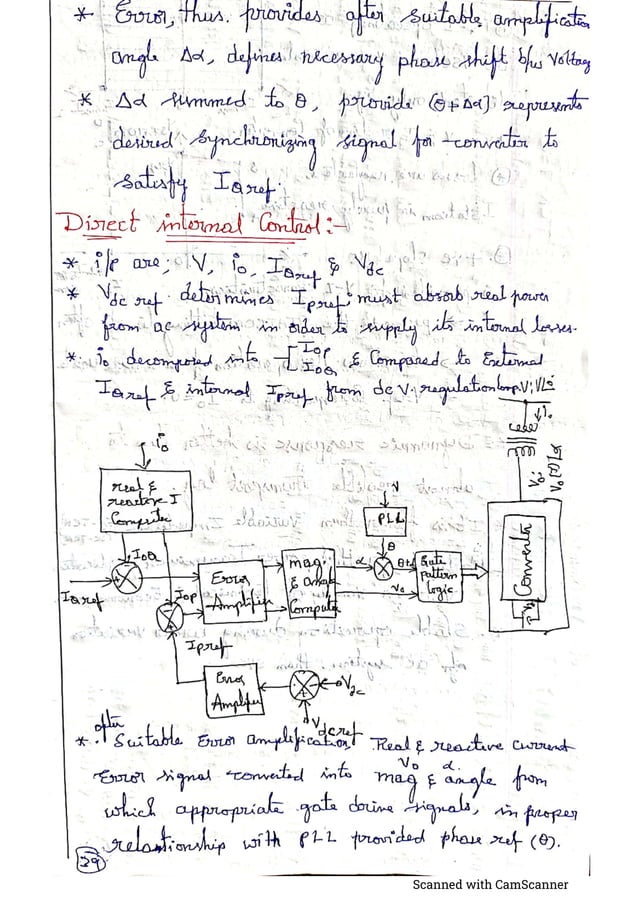 * Error, thus. provides after suitable amplification
angle Δα, defines necessary phase shift b/w Voltag
* Δα summed to θ, provide (θ+Δα) represents
desired synchronizing signal for converter to
satisfy IQref.
Direct internal Control:-
* i/p are; V, io, IQref & Vdc
* Vdc ref. determines Ipref; must absorb real power
from ac system in order to supply its internal losses.
* io decomposed into [IoP IoQ & Compared to External
IQref & internal Ipref from dc V. regulation loop.
V; V∠0
I.
Vo; Vo∠α
io
real & reactive I Computer
IoQ
IQref
Iop
Error Amplifier
mag. & angle Computer
V
PLL
θ
α
θ+α
Vo
Gate Pattern logic
Converter
Ipref
Error Amplifier
Vdc
Vdcref
* after Suitable Error amplification, Real & reactive current
Error signal converted into mag Vo & angle α from
which appropriate gate drive signals, in proper
relationship with PLL provided phase ref (θ).
29
Scanned with CamScanner